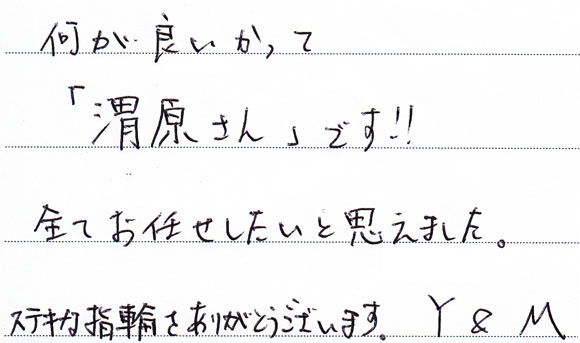 何が良いか、って
「渭原さん」です!!
全てお任せしたいと思えました。
ステキな指輪をありがとうございます。 Y & M